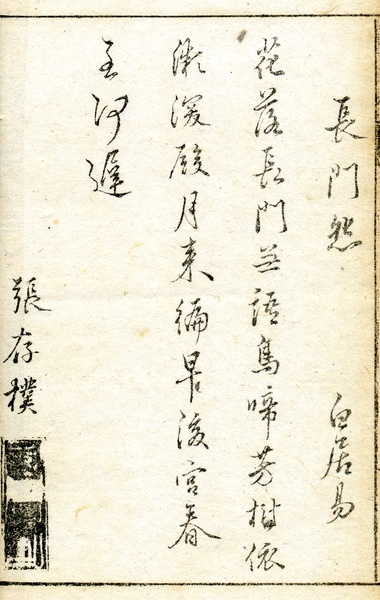 長門怨 白居易
花落長門無語鳥啼芳樹依
微深殿月來偏早後宮春
至何遲
張存樸